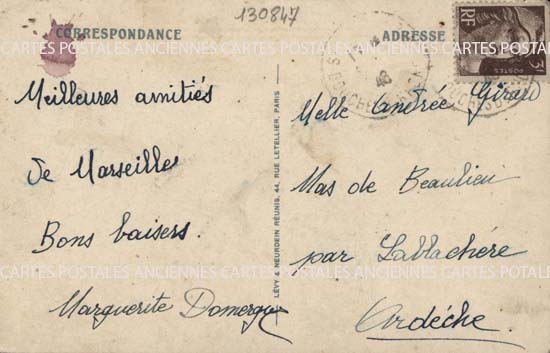 130847
CORRESPONDANCE
ADRESSE
RF
3F
POSTES
48
Meilleures amitiés
de Marseille
Bons baisers.
Marguerite Domergue
LÉVY & NEURDEIN RÉUNIS, 44, RUE LETELLIER, PARIS
Melle Andrée Giraud
Mas de Beaulieu
par Lablachère
Ardèche.
CARTES POSTALES ANCIENNES CARTES POSTALES ANCIENNES CARTES POSTALES